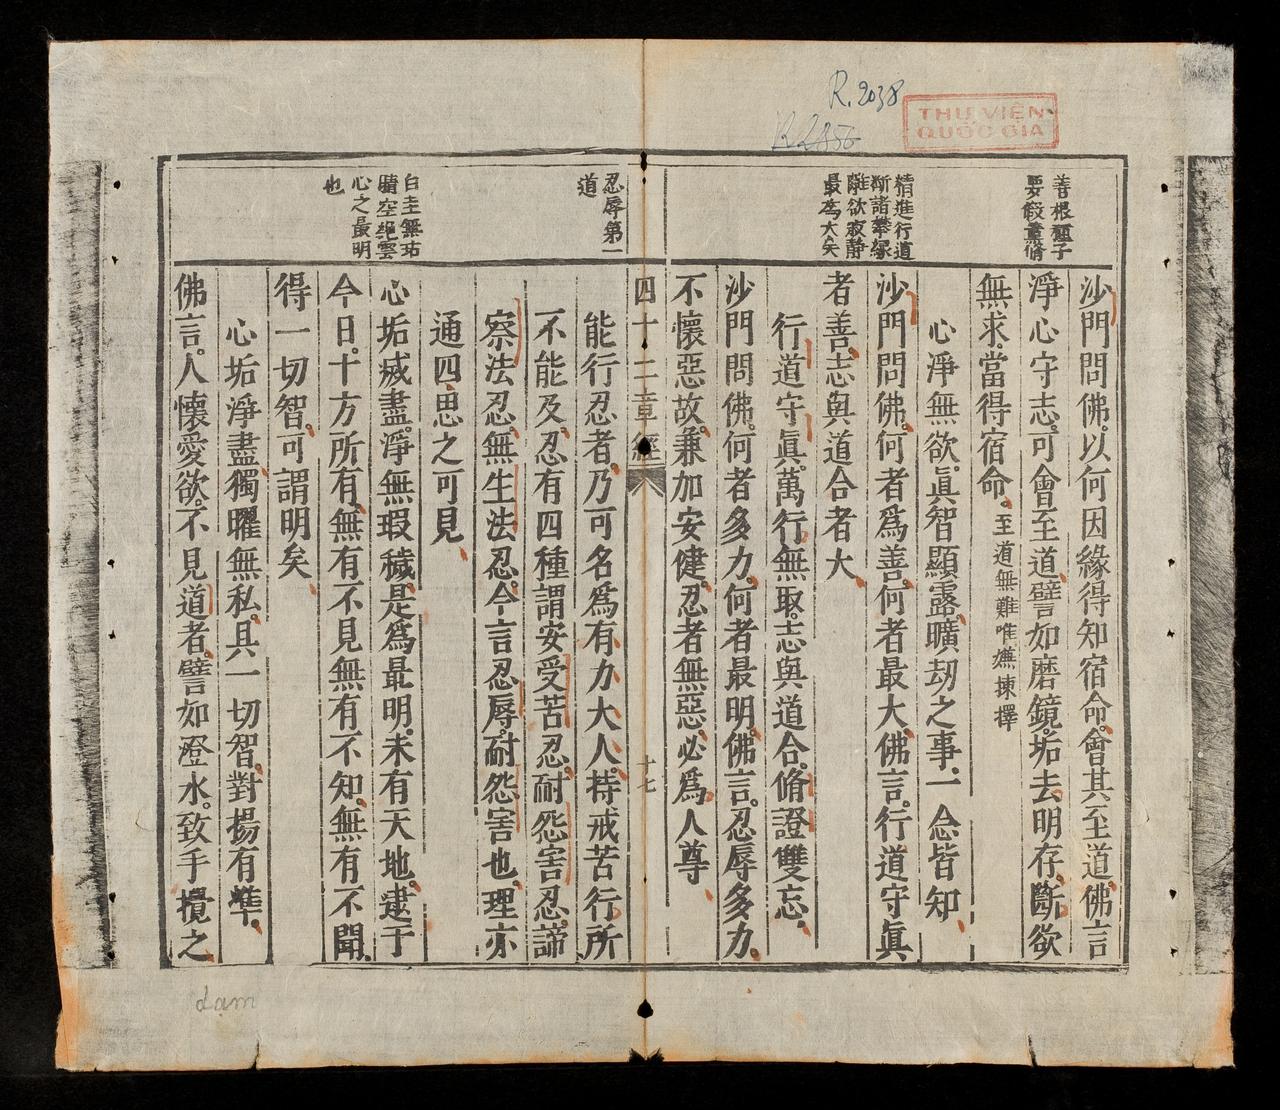 R. 2038
THƯ VIỆN
QUỐC GIA
善根種子
要假熏脩
精進行道
斷諸攀緣
離欲寂靜
最爲大矣
沙門問佛。以何因緣得知宿命。會其至道。佛言
淨心守志。可會至道。譬如磨鏡。垢去明存。斷欲
無求。當得宿命。至道無難唯嫌揀擇
心淨無欲。眞智顯露。曠刧之事。一念皆知
沙門問佛。何者爲善。何者最大。佛言。行道守眞
者善。志與道合者大
行道守眞。萬行無取。志與道合。脩證雙忘
沙門問佛。何者多力。何者最明。佛言。忍辱多力。
不懷惡故。兼加安健。忍者無惡。必爲人尊
四十二章經
十七
忍辱第一
道
白圭無玷
晴空絕雲
心之最明
也
能行忍者。乃可名爲有力大人。持戒苦行所
不能及。忍有四種。謂安受苦忍。耐怨害忍。諦
察法忍。無生法忍。今言忍辱。耐怨害也。理亦
通四。思之可見
心垢滅盡。淨無瑕穢。是爲最明。未有天地。逮于
今日。十方所有。無有不見。無有不知。無有不聞。
得一切智。可謂明矣
心垢淨盡。獨曜無私。具一切智。對揚有準。
佛言。人懷愛欲。不見道者。譬如澄水。致手攪之
dạm